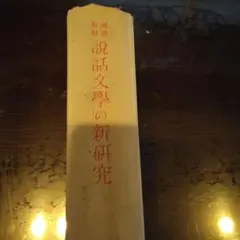 説話文學の新研究